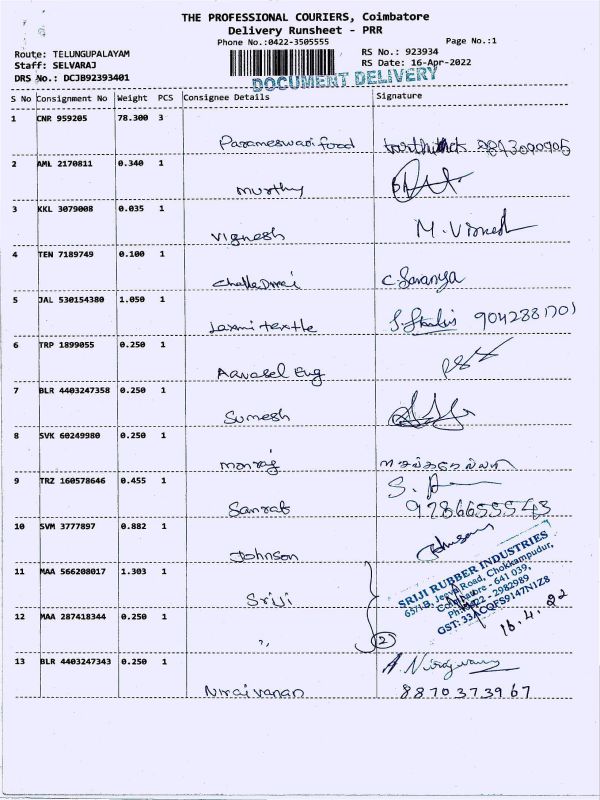 THE PROFESSIONAL COURIERS, Coimbatore
Delivery Runsheet - PRR
Phone No.:0422-3505555
Page No.:1
Route: TELUNGUPALAYAM
RS No.: 923934
Staff: SELVARAJ
RS Date: 16-Apr-2022
DRS No.: DCJB92393401
DOCUMENT DELIVERY
S No Consignment No Weight PCS Consignee Details Signature
1 CNR 959205 78.300 3
Parameswari food
2 AML 2170811 0.340 1
murthy
3 KKL 3079008 0.035 1
Vignesh M. Vignesh
4 TEN 7189749 0.100 1
Chelladurai C Saranya
5 JAL 530154380 1.050 1
Laxmi textle 9042881701
6 TRP 1899055 0.250 1
Aarasel Eng
7 BLR 4403247358 0.250 1
Sumesh
8 SVK 60249980 0.250 1
monraj
9 TRZ 160578646 0.455 1
Sanrab 9786655543
10 SVM 3777897 0.882 1
Johnson Johnson
11 MAA 566208017 1.303 1
Sriji
SRIJI RUBBER INDUSTRIES
65/1B, Jeeva Road, Chokkampudur,
Coimbatore - 641 039,
Ph: 0422 - 2982989
GST: 33ACQFS9147N1Z8
16.4.22
12 MAA 287418344 0.250 1
,, 2
13 BLR 4403247343 0.250 1
Niraivanan A. Niraivanan
8870373967